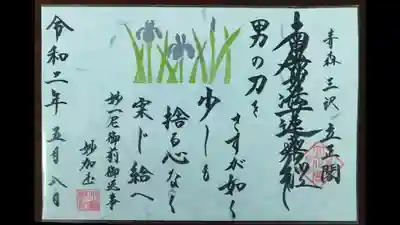 青森 三沢 立正閣
南無妙法蓮華経
男の刀を
さすが如く
少しも
捨る心なく
案じ給へ
妙一尼御前御返事
令和二年 五月 八日